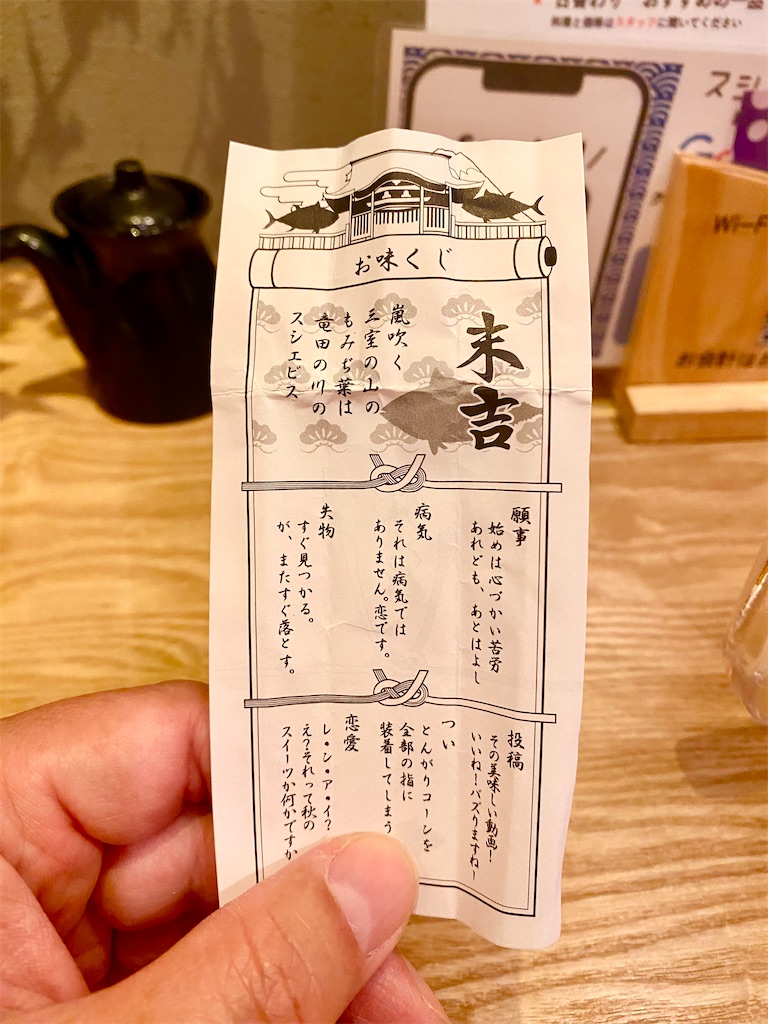 日替わり おすすめの一品
内容と価格はスタッフに聞いてください
お味くじ
末吉
嵐吹く
三室の山の
もみぢ葉は
竜田の川の
スシエビス
願事
始めは心づかい苦労
あれども、あとはよし
病気
それは病気では
ありません。恋です。
失物
すぐ見つかる。
が、またすぐ落とす。
投稿
その美味しい動画!
いいね!バズりますね!
つい
とんがりコーンを
全部の指に
装着してしまう
恋愛
レ・ン・ア・イ?
え?それって秋の
スイーツか何かですか
Wi-F
お会計は